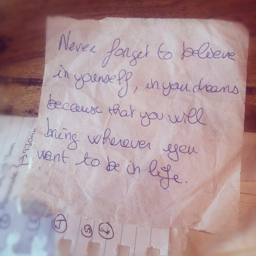 Never forget to believe
in yourself, in your dreams
because that you will
bring wherever you
want to be in life.